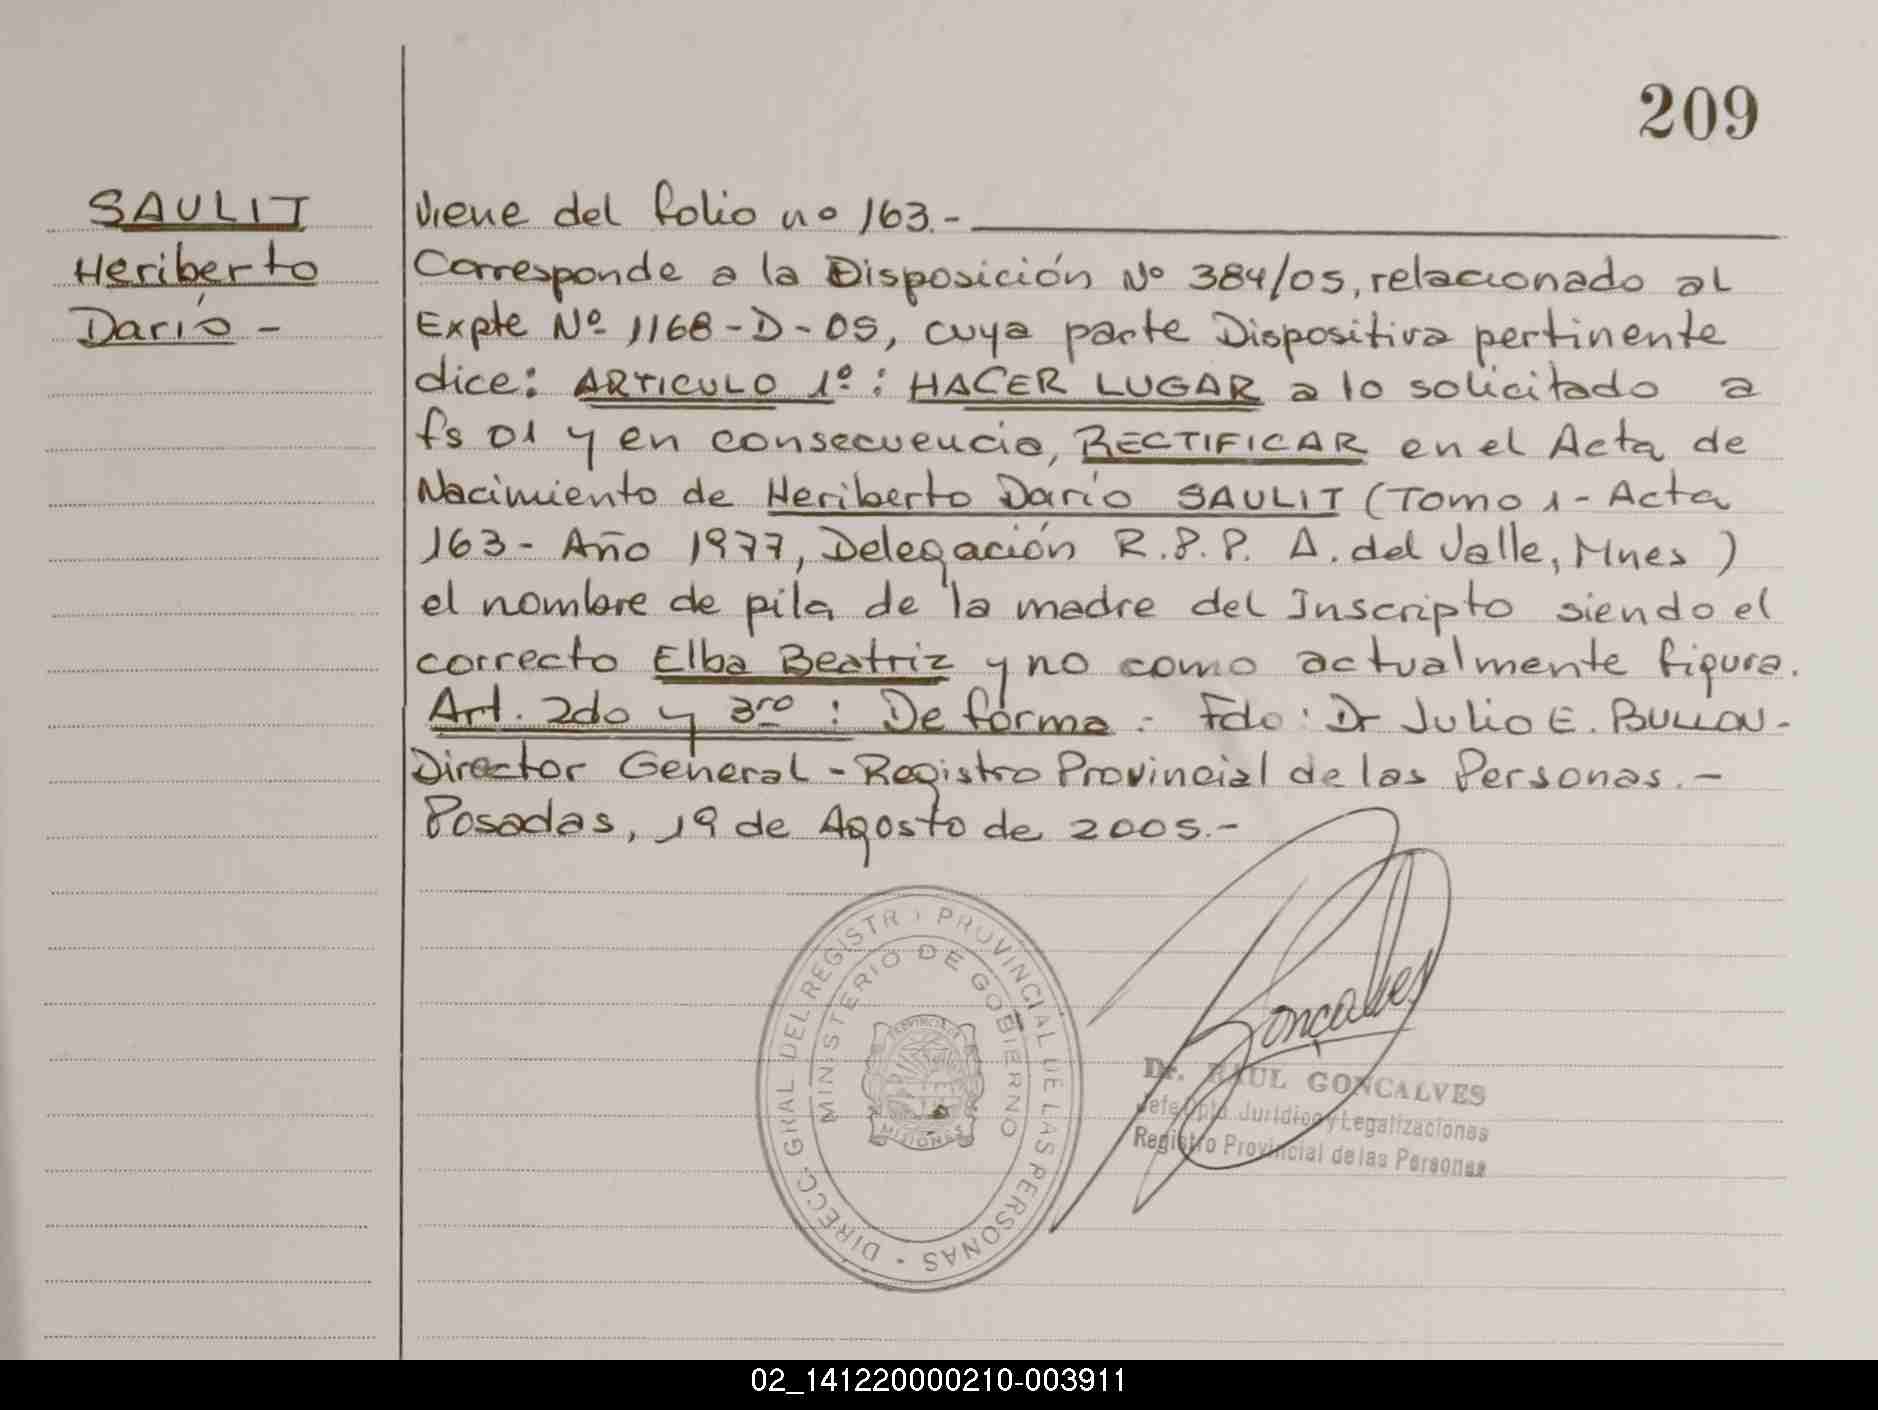 209
SAULIT
Heriberto
Darío -
Viene del folio nº 163.-
Corresponde a la Disposición Nº 384/05, relacionado al
Expte Nº 1168-D-05, cuya parte Dispositiva pertinente
dice: ARTICULO 1º: HACER LUGAR a lo solicitado a
fs 01 y en consecuencia, RECTIFICAR en el Acta de
Nacimiento de Heriberto Darío SAULIT (Tomo 1 - Acta
163 - Año 1977, Delegación R.P.P. A. del Valle, Mnes)
el nombre de pila de la madre del Inscripto siendo el
correcto Elba Beatriz y no como actualmente figura.
Art. 2do y 3ro: De forma. Fdo: Dr Julio E. BULLON-
Director General - Registro Provincial de las Personas.-
Posadas, 19 de Agosto de 2005.-
DIRECC. GRAL DEL REGISTR PROVINCIAL DE LAS PERSONAS
MINISTERIO DE GOBIERNO
PROVINCIA DE
MISIONES
Gonçalves
Dr. RAUL GONCALVES
Jefe Dpto Jurídico y Legalizaciones
Registro Provincial de las Personas
02_141220000210-003911